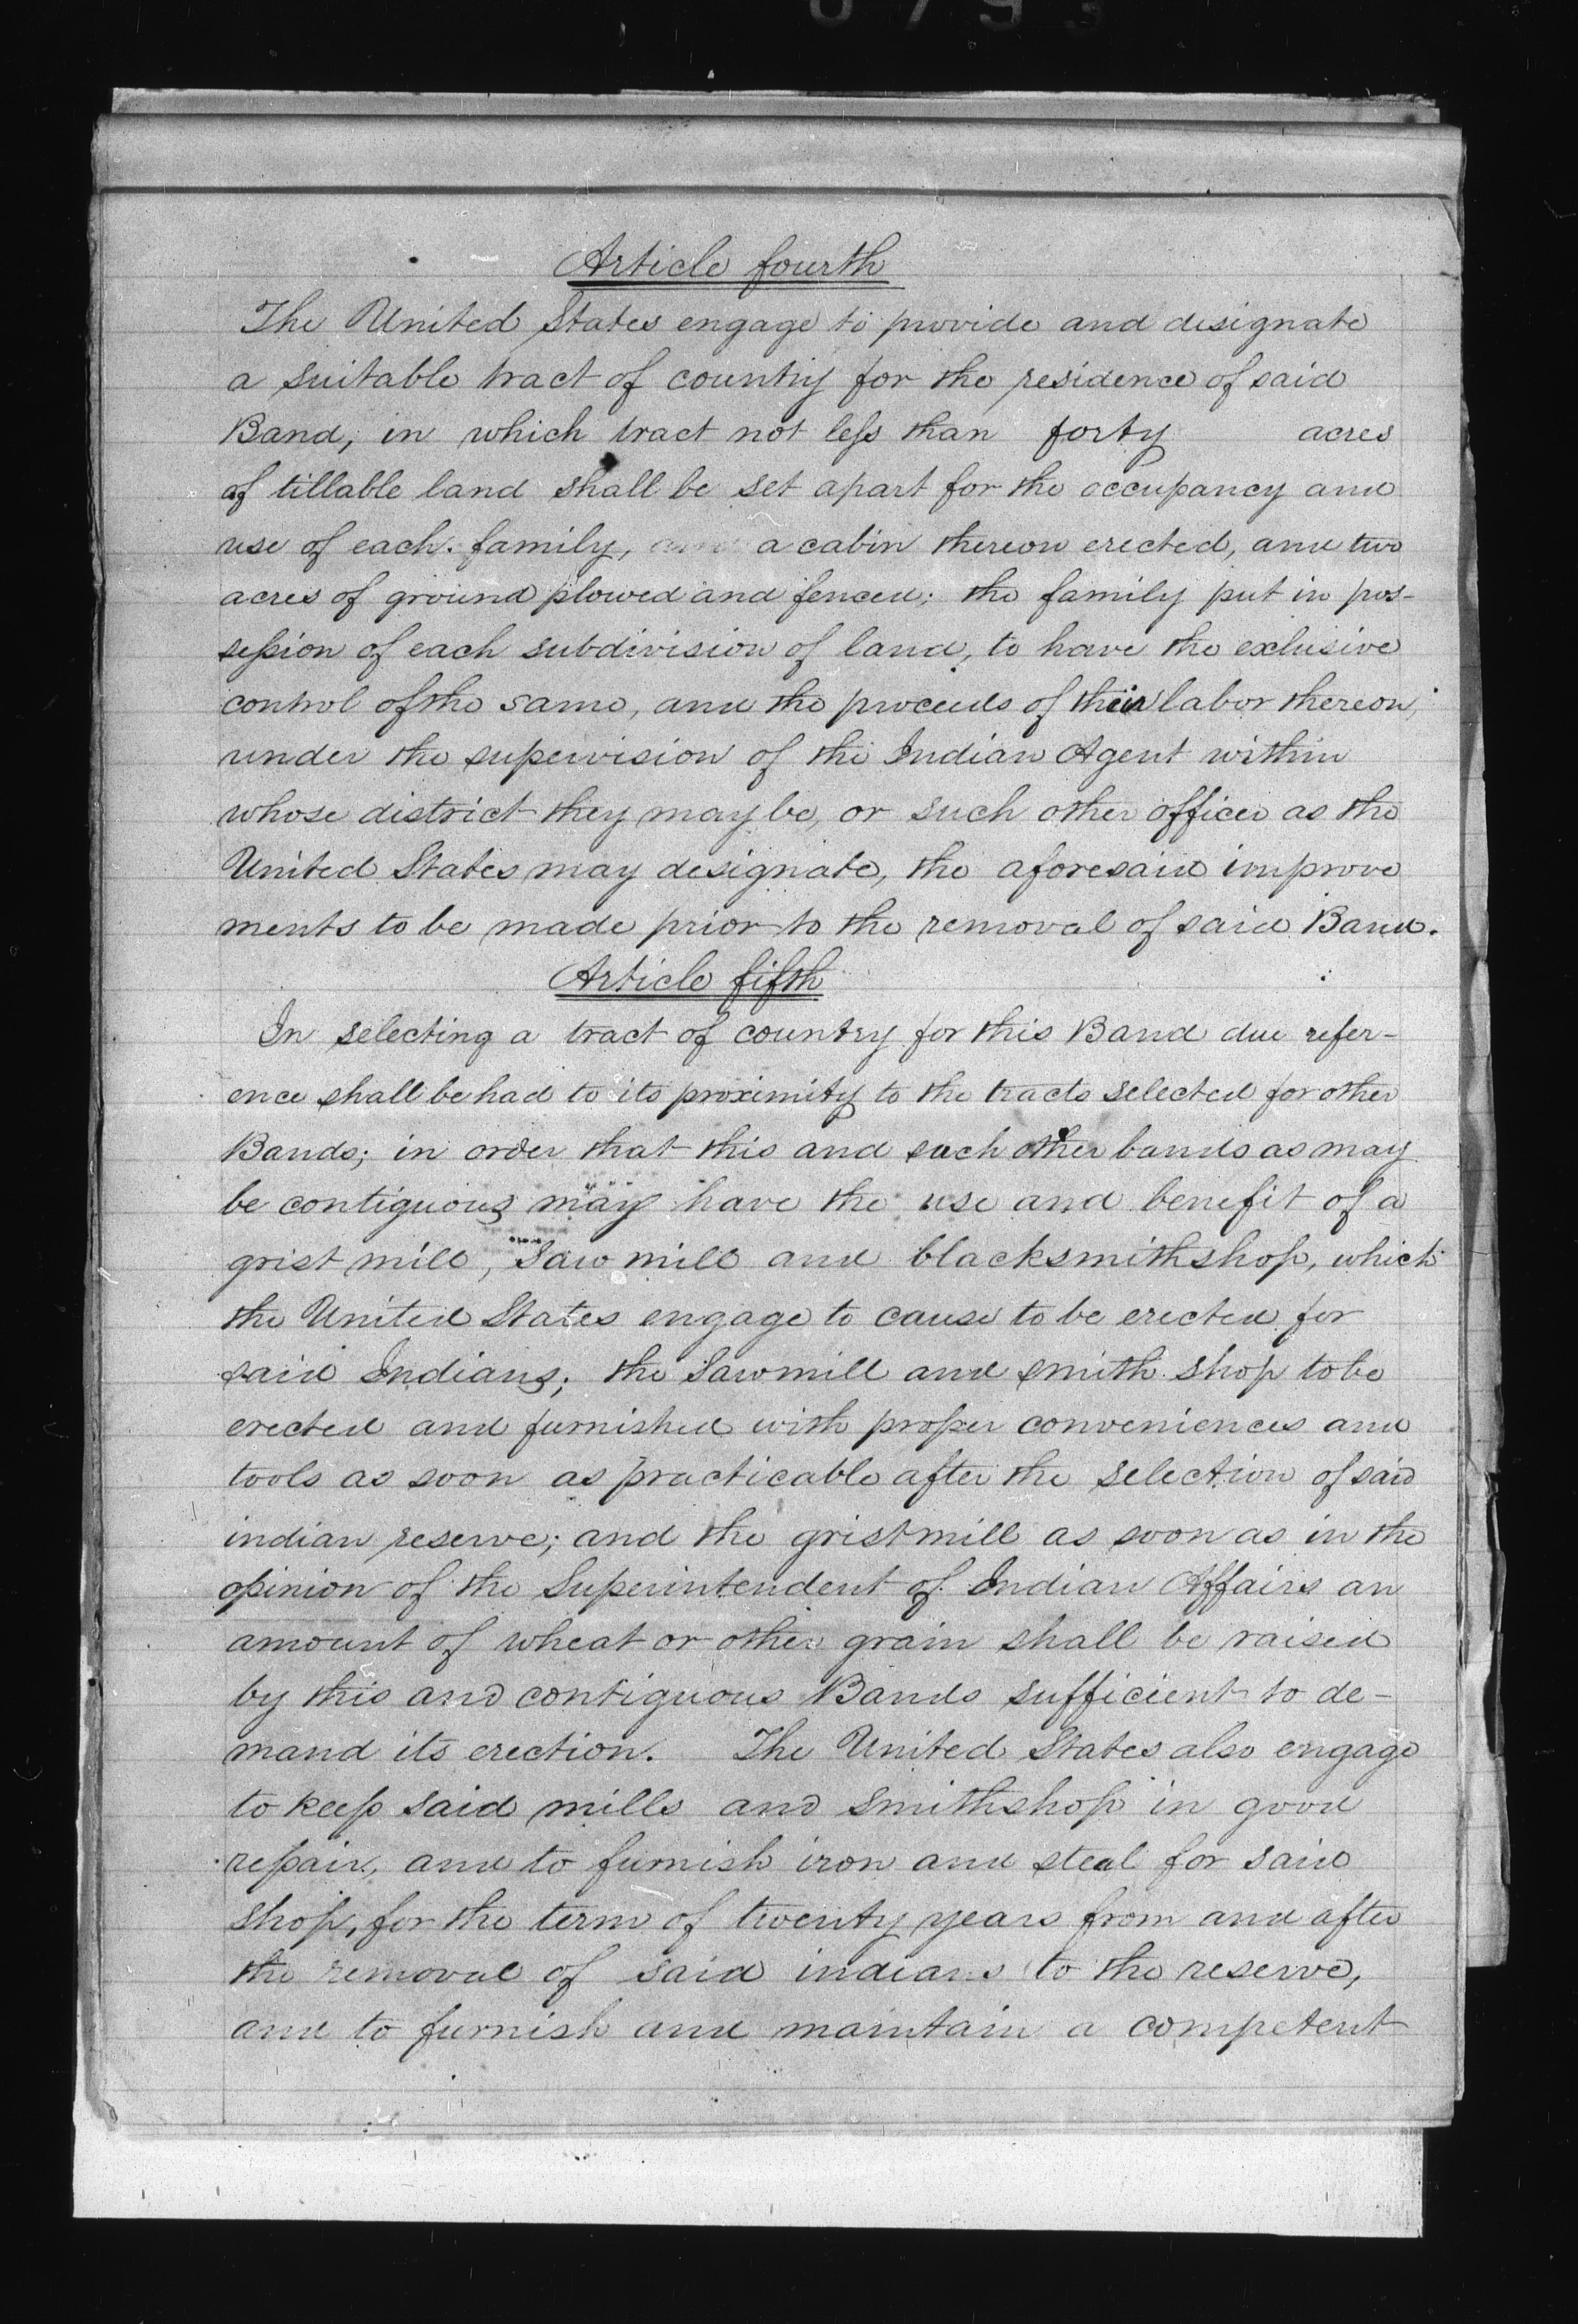 Article fourth
The United States engage to provide and designate
a suitable tract of country for the residence of said
Band; in which tract not less than forty acres
of tillable land shall be set apart for the occupancy and
use of each family, a cabin thereon erected, and two
acres of ground plowed and fenced; the family put in pos-
session of each subdivision of land, to have the exclusive
control of the same, and the proceeds of their labor thereon,
under the supervision of the Indian Agent within
whose district they may be, or such other officer as the
United States may designate, the aforesaid improve
ments to be made prior to the removal of said Band.
Article fifth
In selecting a tract of country for this Band due refer-
ence shall be had to its proximity to the tracts selected for other
Bands; in order that this and such other bands as may
be contiguous may have the use and benefit of a
grist mill, Saw mill and blacksmithshop, which
the United States engage to cause to be erected for
said Indians; the Sawmill and smith shop to be
erected and furnished with proper conveniences and
tools as soon as practicable after the selection of said
indian reserve; and the gristmill as soon as in the
opinion of the Superintendent of Indian Affairs an
amount of wheat or other grain shall be raised
by this and contiguous Bands sufficient to de-
mand its erection. The United States also engage
to keep said mills and smithshop in good
repair, and to furnish iron and steal for said
shop, for the term of twenty years from and after
the removal of said indians to the reserve,
and to furnish and maintain a competent